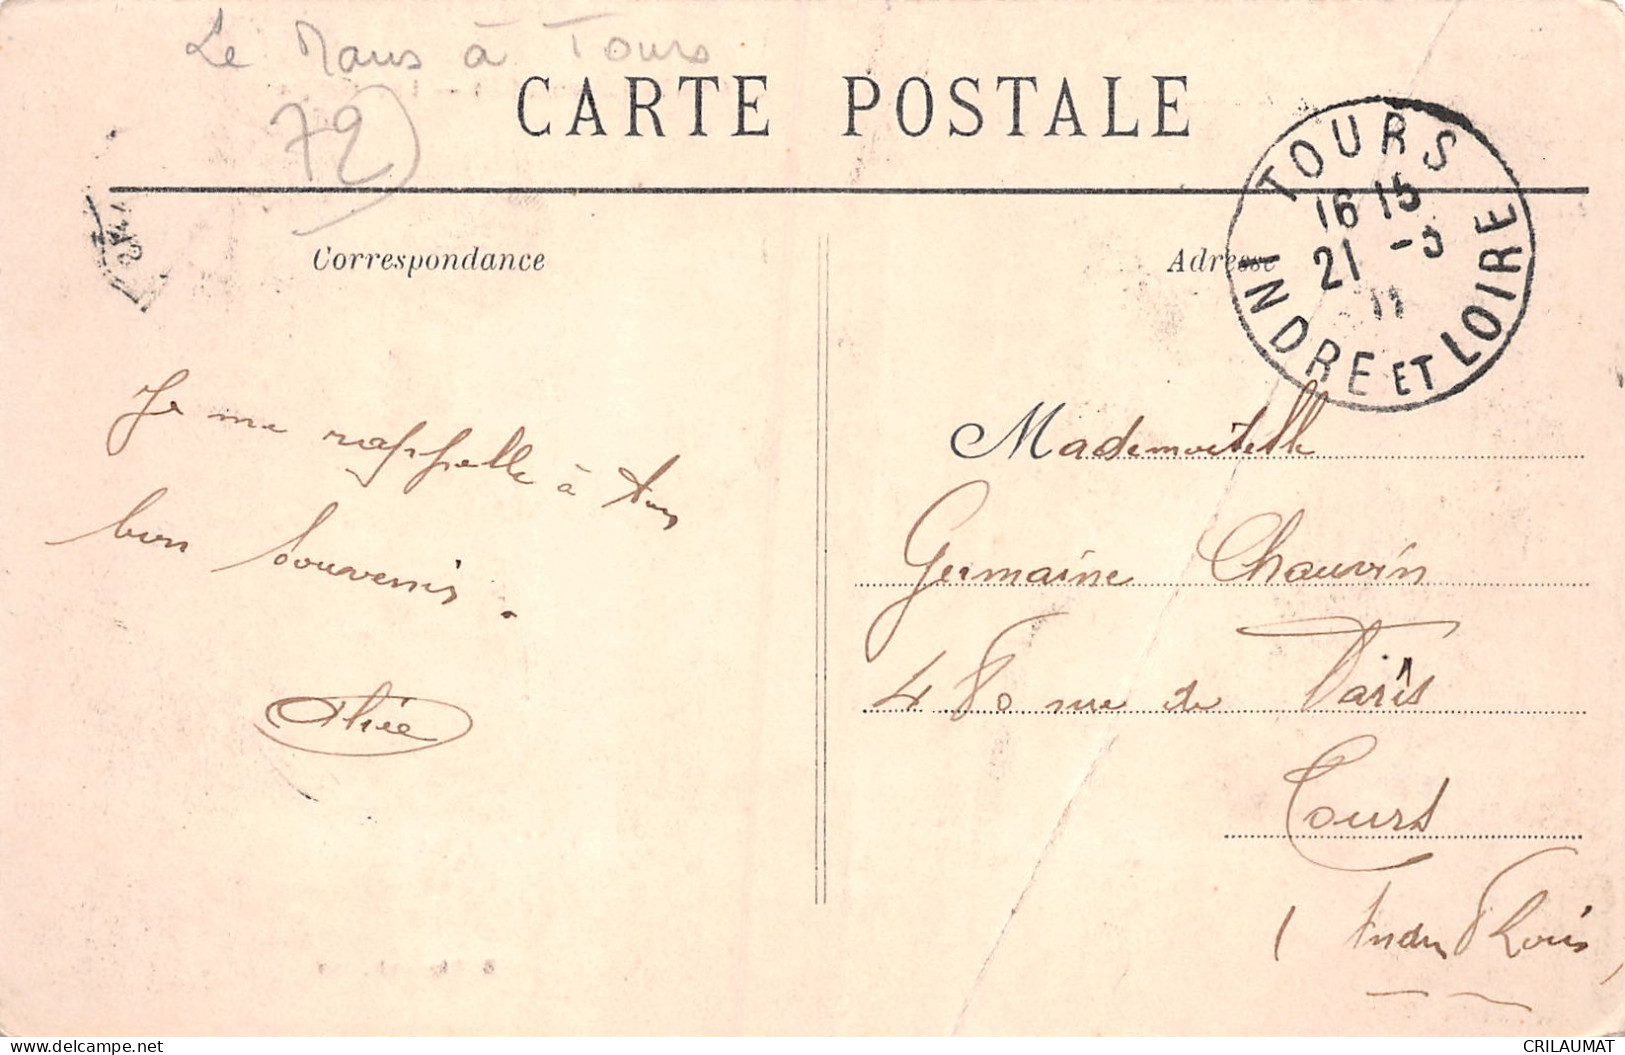 Le Mans à Tours
72
CARTE POSTALE
TOURS
16 15
21 -5
11
INDRE ET LOIRE
Correspondance
Adresse
Je me rappelle à ton
bon souvenir.
Mademoiselle
Germaine Chauvin
48 rue de Paris
Tours
(Indre & Loire)
CRILAUMAT